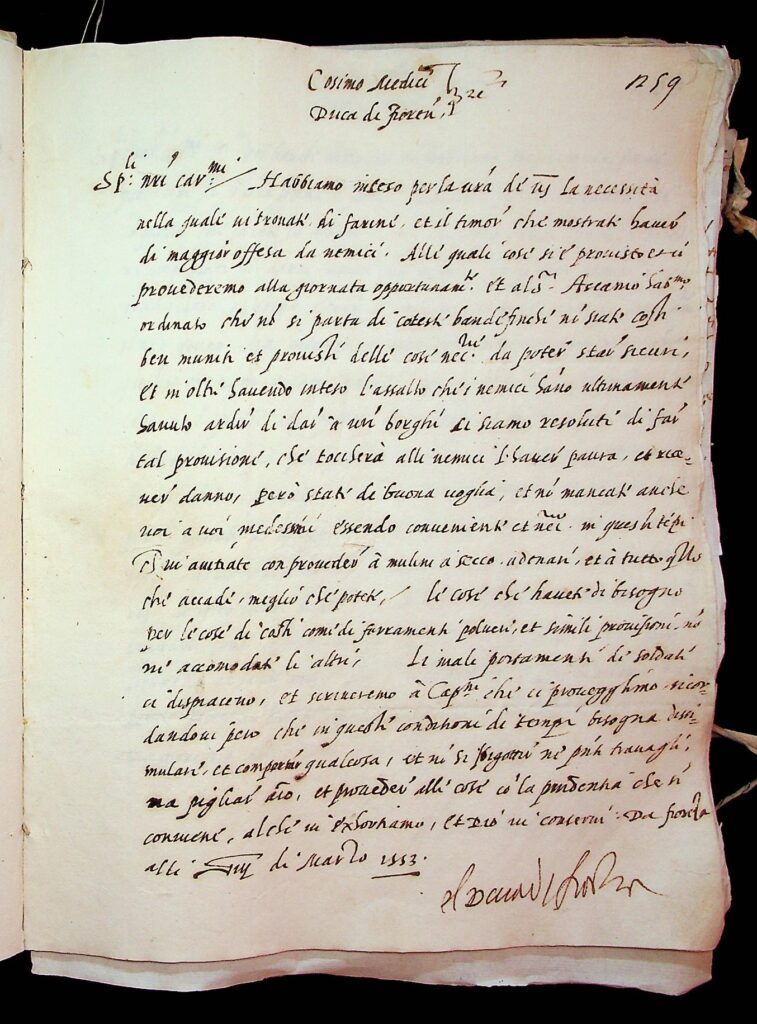 Cosimo Medici
1259
Duca di Fioren.
Sp.li nri car.mi Habbiamo inteso per la vra de la necessità
nella quale vi trovate di farine, et il timor che mostrate haver
di maggior offesa da nemici. Alle quali cose si è provisto et si
provederemo alla giornata opportunam.te et al S.r Ascanio hab.mo
ordinato che nō si parta di coteste bande finche nō siate costì
ben muniti et provisti delle cose nec.rie da poter star sicuri,
Et in oltre havendo inteso l'assalto che i nemici hāno ultimamente
havuto ardir di dar à vri borghi ci siamo resoluti di far
tal provisione, che toccherà alli nemici l'haver paura, et rice-
ver danno, però state di buona voglia, et nō mancate anche
voi a voi medessimi essendo conveniente et nec.rio in questi tēpi
vi aiutiate con proveder à mulini a secco, adenari, et à tutto qllo
che accade, meglio che potete, le cose che havete di bisogno
per le cose di costì come di ferramenti polveri, et simili provisioni nō
ne accomodate li altri, Li mali portamenti de soldati
ci dispiaceno, et scriveremo à Cap.ni che ci provegghino ricor-
dandovi però che in queste conditioni di tempi bisogna dissi-
mulare, et comportar qualcosa, et nō si sbigottir ne pnti travagli,
ma pigliar aīo, et proveder alle cose cō la prudentia che si
conviene, alche vi exhortiamo, et Dio vi conservi. Da Fiorēza
alli di Marzo 1553.
el Duca di fiorenza